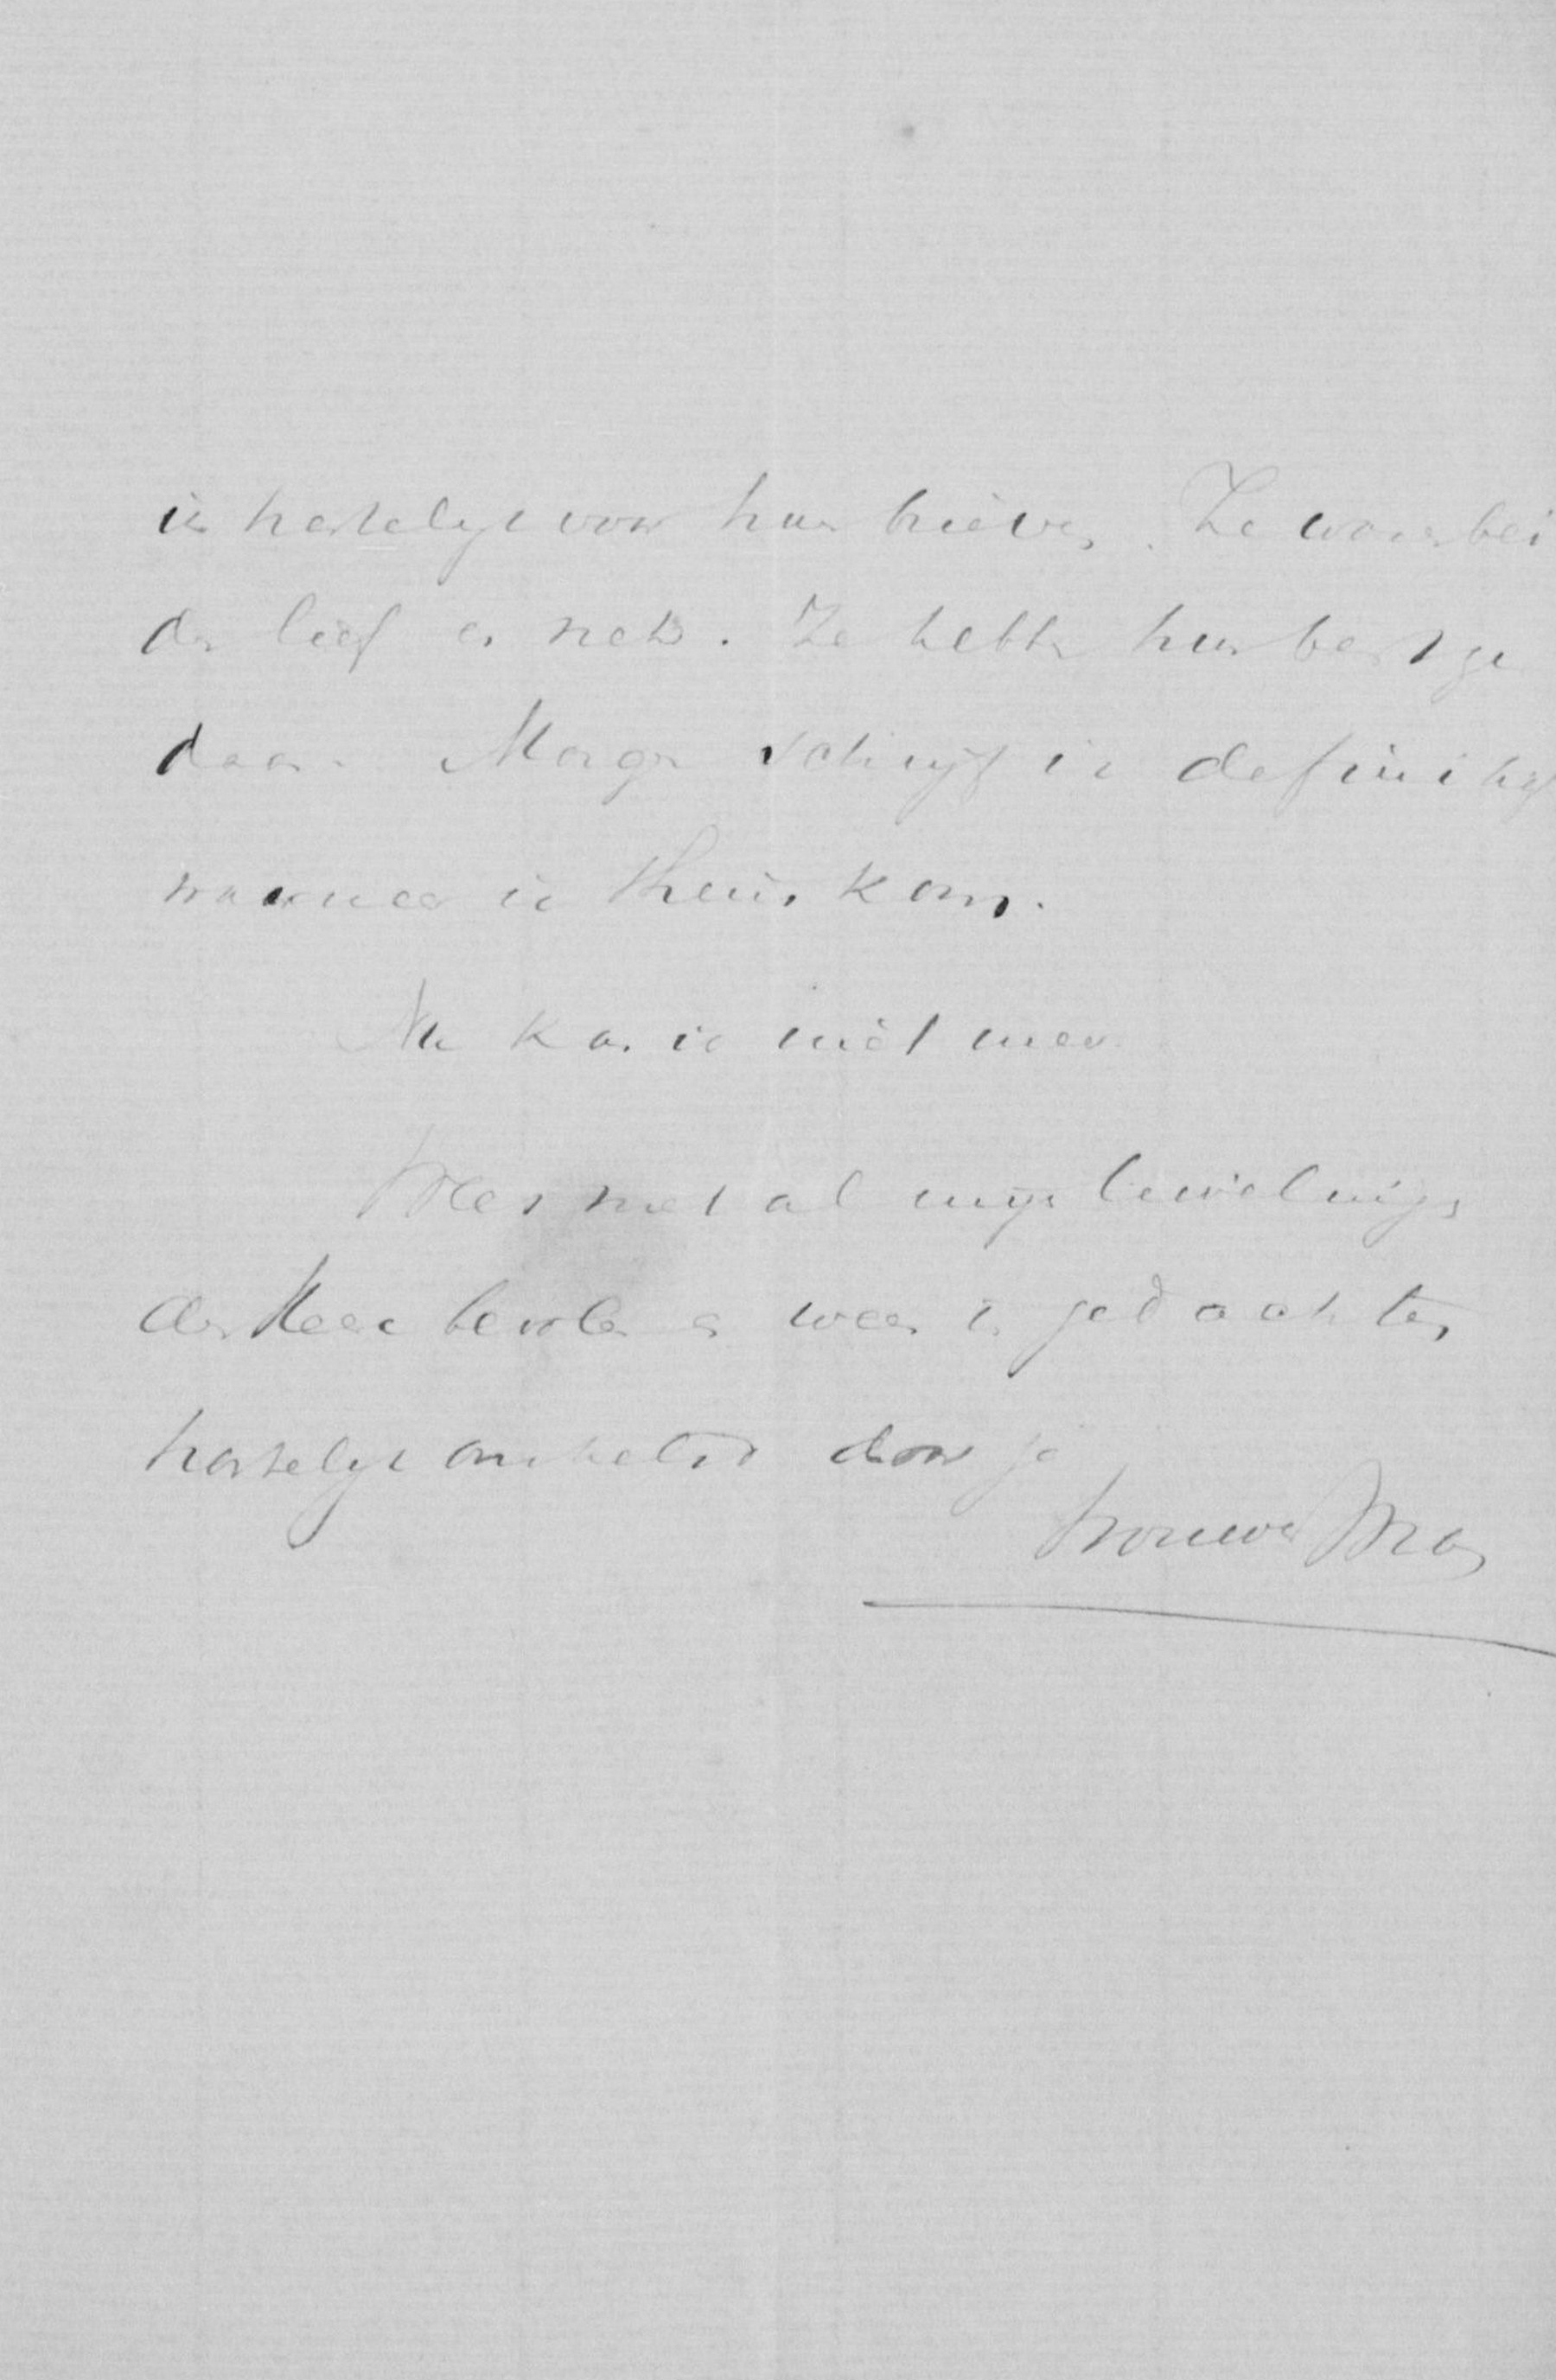 ik hartelyk voor hun brieven. Ze waren bei
den lief en nets. Ze hebben hun best ge
daan. Morgen schryf ik definityf
wanneer ik thuis kom.
Nu kan ik niet meer.
Wees met al myn lievelingen
den Heere bevolen en wees in gedachten
hartelyk omhelsd door je
trouwen Man